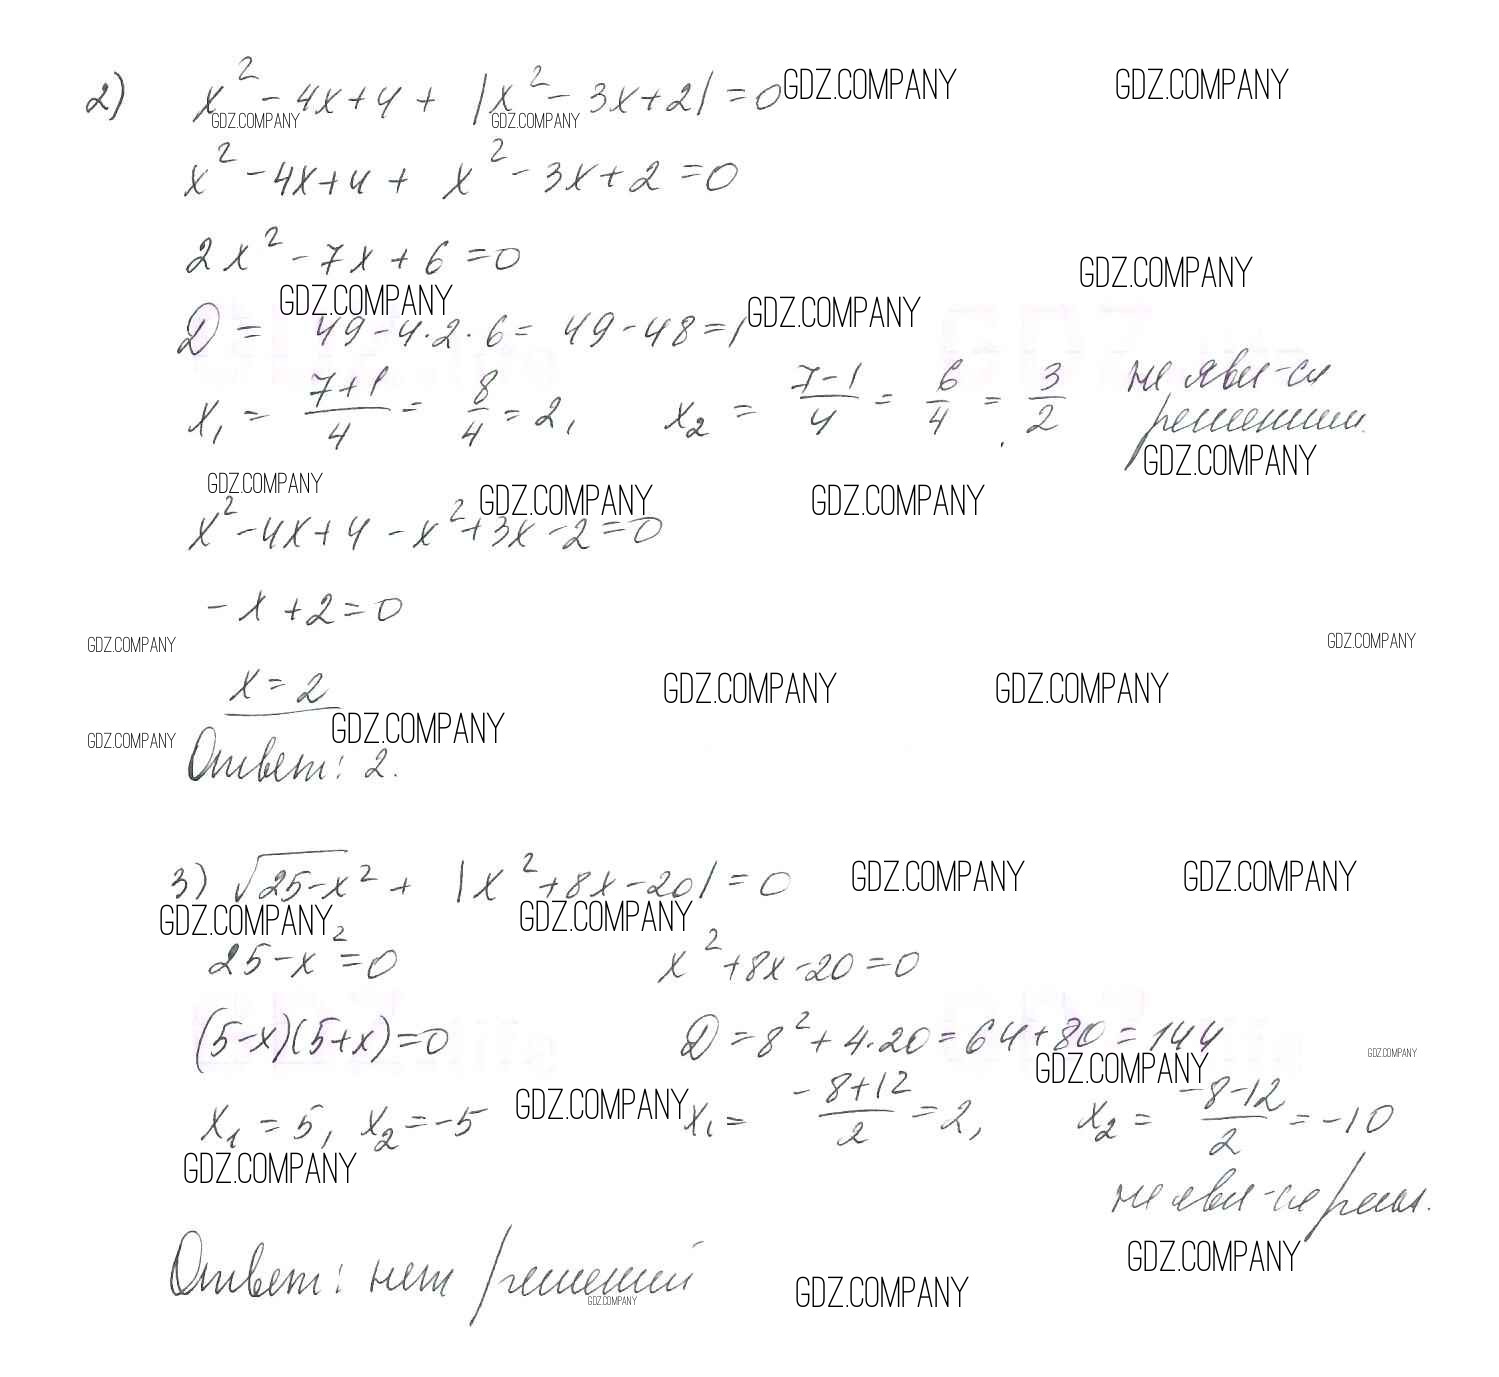 2) x² - 4x + 4 + |x² - 3x + 2| = 0 GDZ.COMPANY GDZ.COMPANY
GDZ.COMPANY GDZ.COMPANY
x² - 4x + 4 + x² - 3x + 2 = 0
2x² - 7x + 6 = 0
GDZ.COMPANY
GDZ.COMPANY GDZ.COMPANY
D = 49 - 4·2·6 = 49 - 48 = 1
x₁ = (7+1)/4 = 8/4 = 2, x₂ = (7-1)/4 = 6/4 = 3/2 не явл-ся
решением.
GDZ.COMPANY
GDZ.COMPANY GDZ.COMPANY GDZ.COMPANY
x² - 4x + 4 - x² + 3x - 2 = 0
-x + 2 = 0
GDZ.COMPANY GDZ.COMPANY
x = 2 GDZ.COMPANY GDZ.COMPANY
GDZ.COMPANY GDZ.COMPANY
Ответ: 2.
3) √25-x² + |x² + 8x - 20| = 0 GDZ.COMPANY GDZ.COMPANY
GDZ.COMPANY GDZ.COMPANY
25 - x² = 0 x² + 8x - 20 = 0
(5-x)(5+x) = 0 D = 8² + 4·20 = 64 + 80 = 144
GDZ.COMPANY GDZ.COMPANY
x₁ = 5, x₂ = -5 GDZ.COMPANY x₁ = (-8+12)/2 = 2, x₂ = (-8-12)/2 = -10
GDZ.COMPANY
не явл-ся реш.
Ответ: нет решений
GDZ.COMPANY GDZ.COMPANY GDZ.COMPANY